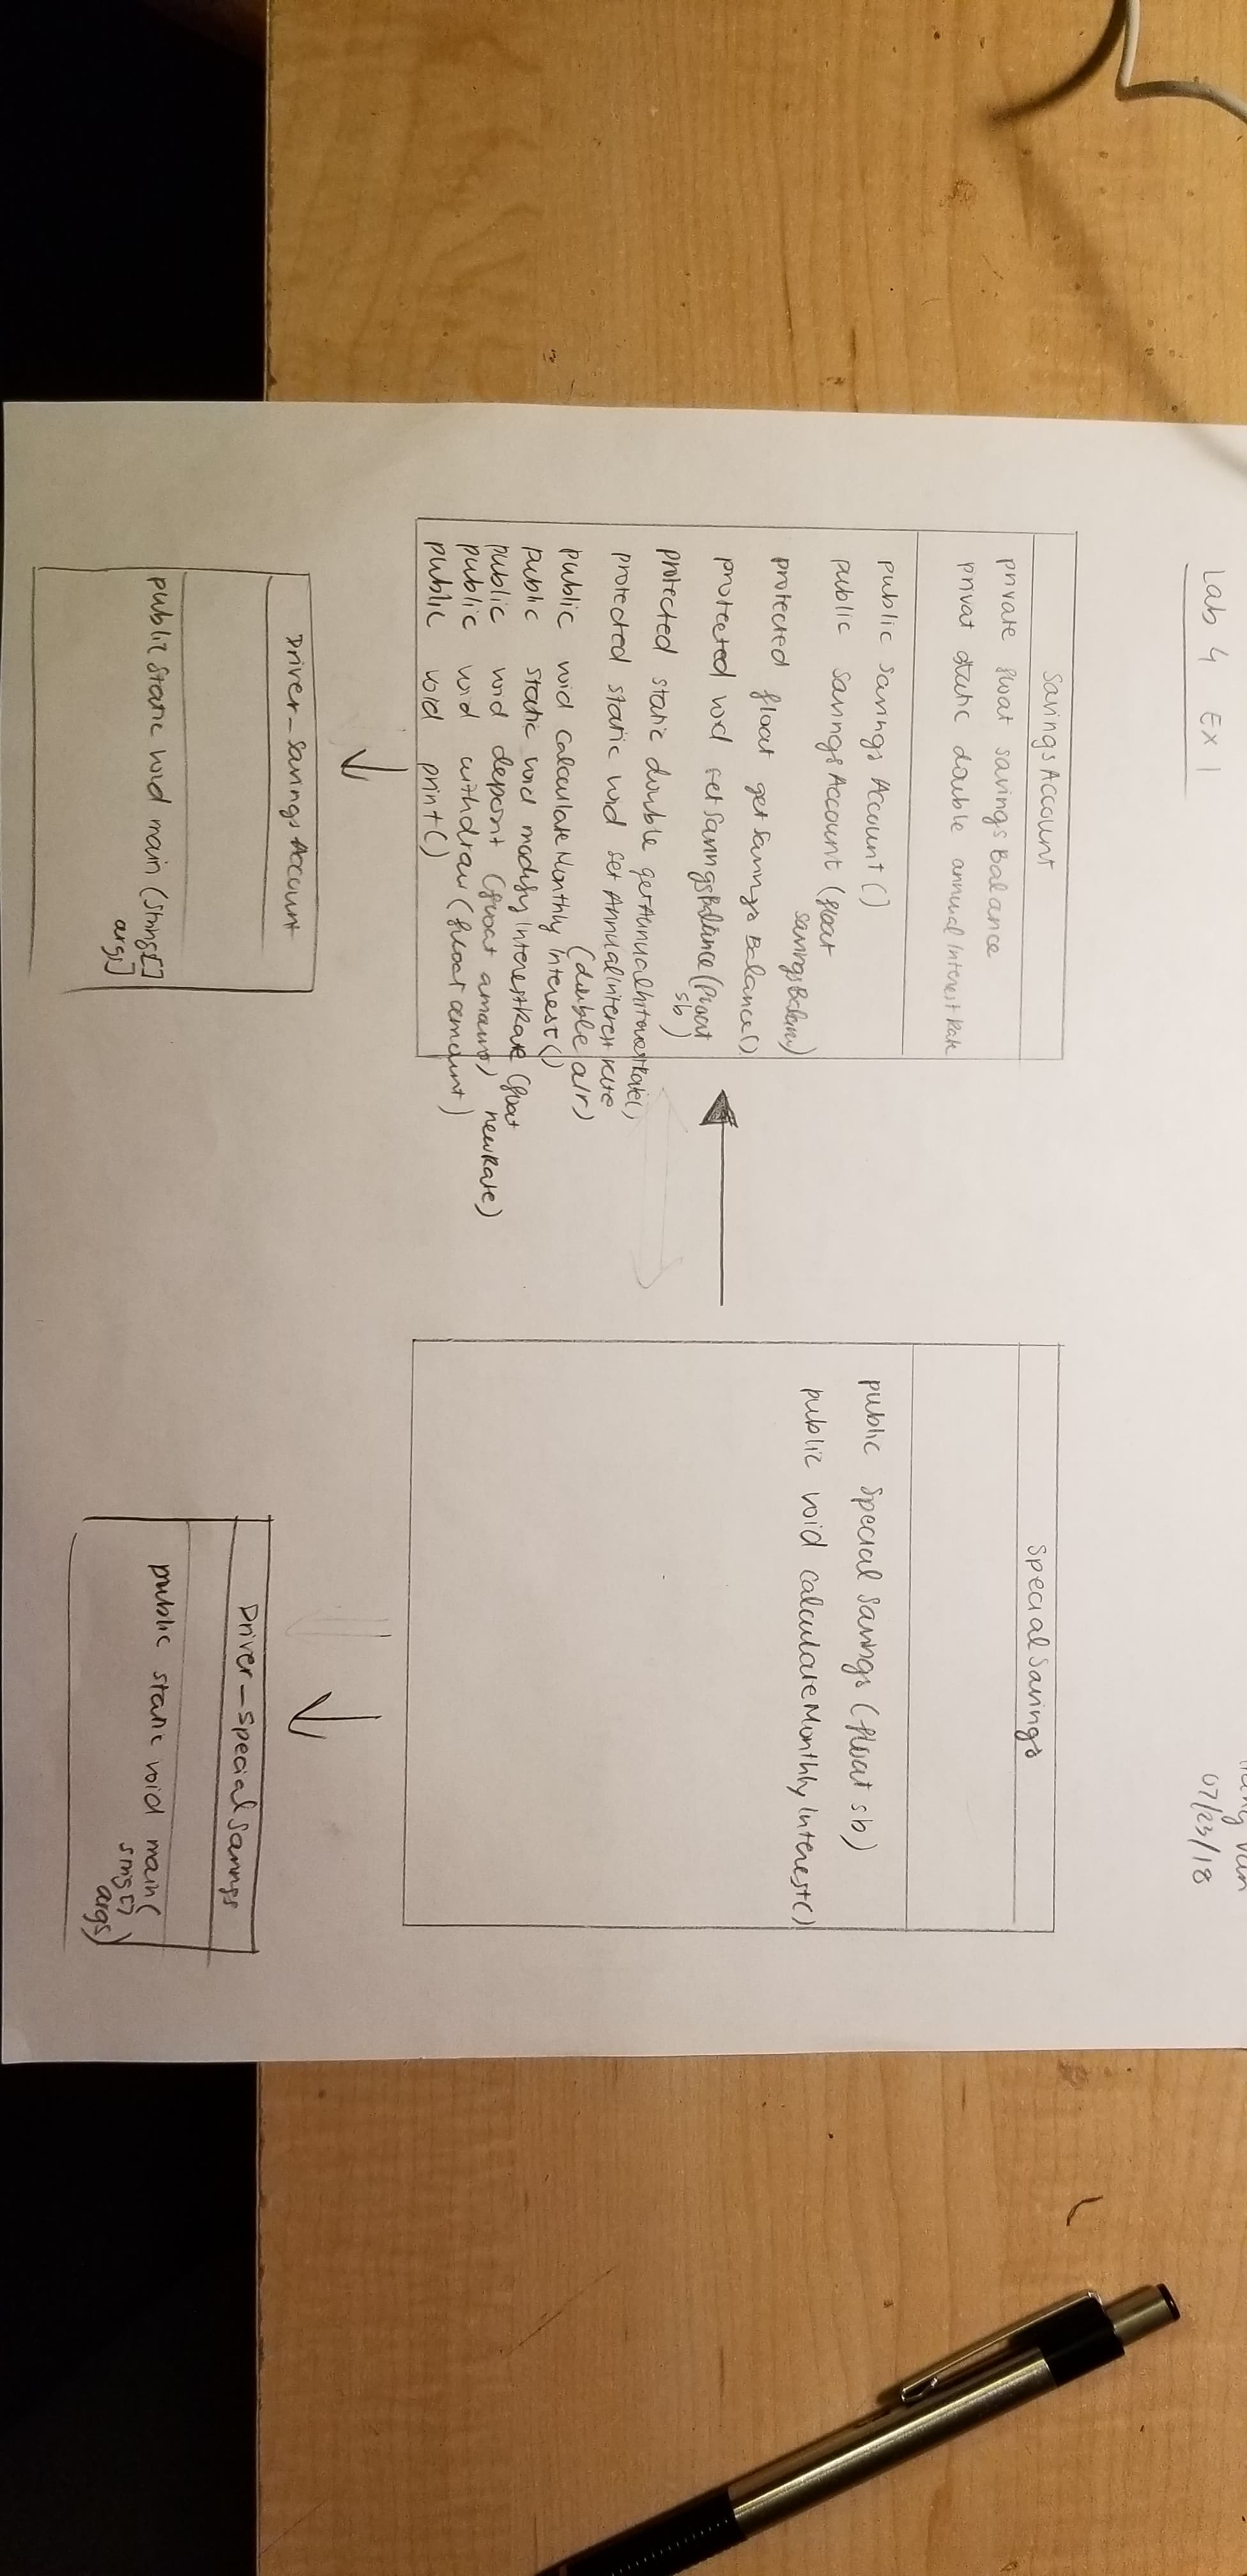 Lab 4 EX 1
07/23/18
Savings Account
private float savings Balance
privat static double annual Interest Rate
public savings Account ()
public savings Account (float
savings Balance)
protected float get savings Balance()
protected void set savings Balance (float
sb)
protected static double getAnnualInterestRate()
protected static void set AnnualInterest rate
(double air)
public void calculate Monthly Interest ()
public static void modify InterestRate (float
newRate)
public void deposit (float amount)
public void withdraw (float amount)
public void print ()
Special Savings
public Special Savings (float sb)
public void calculate Monthly Interest ()
Driver_Savings Account
public static void main (String[]
args]
Driver_Special Savings
public static void main (
args)